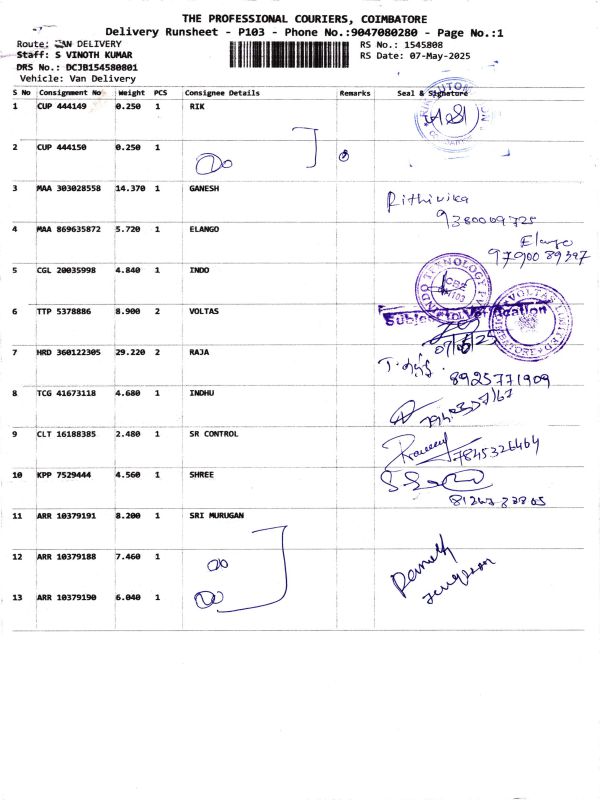 THE PROFESSIONAL COURIERS, COIMBATORE
Delivery Runsheet - P103 - Phone No.:9047080280 - Page No.:1
Route: VAN DELIVERY
RS No.: 1545808
Staff: S VINOTH KUMAR
RS Date: 07-May-2025
DRS No.: DCJB154580801
Vehicle: Van Delivery
S No Consignment No Weight PCS Consignee Details Remarks Seal & Signature
1 CUP 444149 0.250 1 RIK
2 CUP 444150 0.250 1
3 MAA 303028558 14.370 1 GANESH
Rithivika
9380009725
4 MAA 869635872 5.720 1 ELANGO
Elango
9790089397
5 CGL 20035998 4.840 1 INDO
INDO TEKNOLOGY
CBE
6 TTP 5378886 8.900 2 VOLTAS
VOLTAS LIMITED
Subject to Verification
07/5/25
7 HRD 360122305 29.220 2 RAJA
8925771909
8 TCG 41673118 4.680 1 INDHU
9 CLT 16188385 2.480 1 SR CONTROL
7845326464
10 KPP 7529444 4.560 1 SHREE
11 ARR 10379191 8.200 1 SRI MURUGAN
12 ARR 10379188 7.460 1
13 ARR 10379190 6.040 1